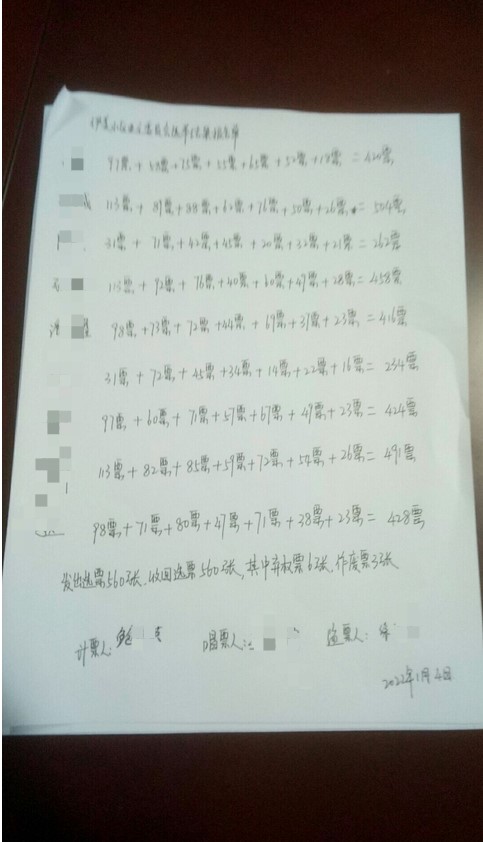 选举结果报告单
97票+58票+75票+55票+65票+52票+18票=420票
113票+89票+88票+62票+76票+50票+26票=504票
31票+71票+42票+45票+20票+32票+21票=262票
113票+92票+76票+40票+60票+49票+28票=458票
98票+73票+72票+44票+69票+37票+23票=416票
31票+72票+45票+34票+14票+22票+16票=234票
97票+60票+71票+57票+67票+49票+23票=424票
113票+82票+85票+59票+72票+54票+26票=491票
98票+71票+80票+47票+71票+38票+23票=428票
发出选票560张,收回选票560张,其中弃权票6张,作废票33张
计票人: 唱票人: 监票人:
2022年1月4日